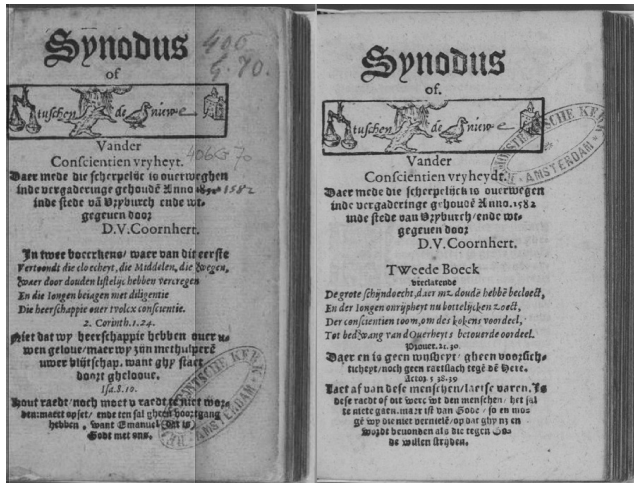 Synodus
of
tuschen de niewe
Vander
Conscientien vryheyt.
Daer mede die scherpelijc is ouerweghen
inde vergaderinge gehoudē Anno 1582
inde stede vā Vryburch ende wt-
gegeuen door
D.V. Coornhert.
In twee boecxkens, waer van dit eerste
Vertoondt die cloecheyt, die Middelen, die weghen,
Waer door douden listelijc hebben vercregen
En die Iongen beiagen met diligentie
Die heerschappie ouer tvolcx conscientie.
2. Corinth. 1. 24.
Niet dat wy heerschappie hebben ouer u-
wen geloue/maer wy zijn methulpers
uwer blijtschap. want ghy staet
doort gheloove.
Isa. 8. 10.
Hout raedt/noch moet u raedt te niet wor-
den: maect opset/ ende ten sal gheen voortgang
hebben, want Emanuel (dat is)
Godt met ons.
406
G. 70.
406G70
Synodus
of.
tuschen de niewe
Vander
Conscientien vryheydt.
Daer mede die scherpelijck is ouerwegen
inde vergaderinge gehoudē Anno. 1582
inde stede van Vryburch/ende wt-
gegeuen door
D.V. Coornhert.
TWeede Boeck
verclarende
De grote schijndoecht, daer mz doudē hebbē becloect,
En der Iongen onrijpheyt nu bottelijcken zoect,
Der conscientien toom, om des kokens voordeel,
Tot bedwang van d'Ouerheyts betouerde oordeel.
Prouer. 21. 30.
Daer en is geen wijsheyt/ gheen voorsich-
ticheyt/noch geen raetslach tegē dē Here.
Actor. 5 38. 39
Laet af van dese menschen/laetse varen. Is
dese raedt of dit werc wt den menschen/ het sal
te niete gaen. maer ist van Gode / so en mo-
gē wy die niet vernielē/op dat ghy nz en
wordt beuonden als die tegen Go-
de willen strijden.
AMSTERDAM